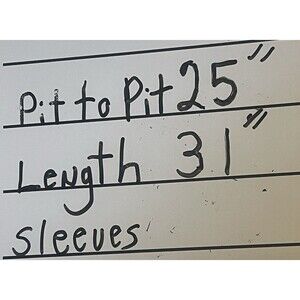 Pit to Pit 25"
Length 31"
Sleeves